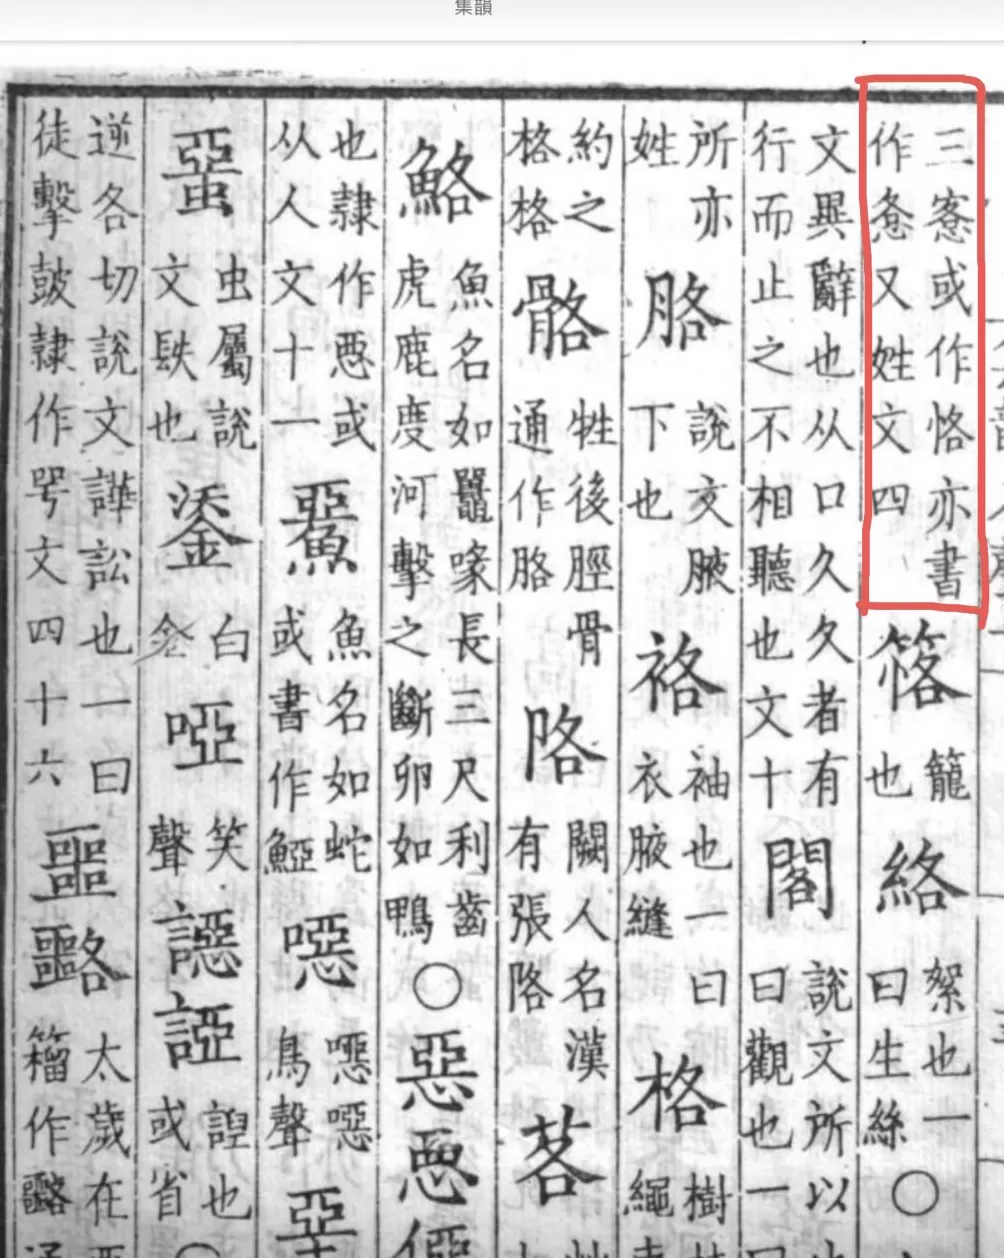 集韻
三愙或作恪亦書
作又姓文四
籠
也
絡
絮也一
曰生絲
○
文異辭也从口久久者有
行而止之不相聽也文十
閣
說文所以
曰觀也一曰
所亦
姓
胳
說文腋
下也
袼
袖也一曰
衣腋縫
格
樹
繩
約之
格格
骼
牲後脛骨
通作胳
闕人名漢
有張
茖
鮥
魚名如鼉喙長三尺利齒
虎鹿度河擊之斷卵如鴨
○
惡
悪
也隸作悪或
从人文十一
魚名如蛇
或書作
噁
噁噁
鳥聲
堊
蝁
虫屬說
文镻也
鋈
白
金
啞
笑
聲
也
或省
逆各切說文譁訟也一曰
徒擊鼓隸作咢文四十六
噩
太歲在
籀作